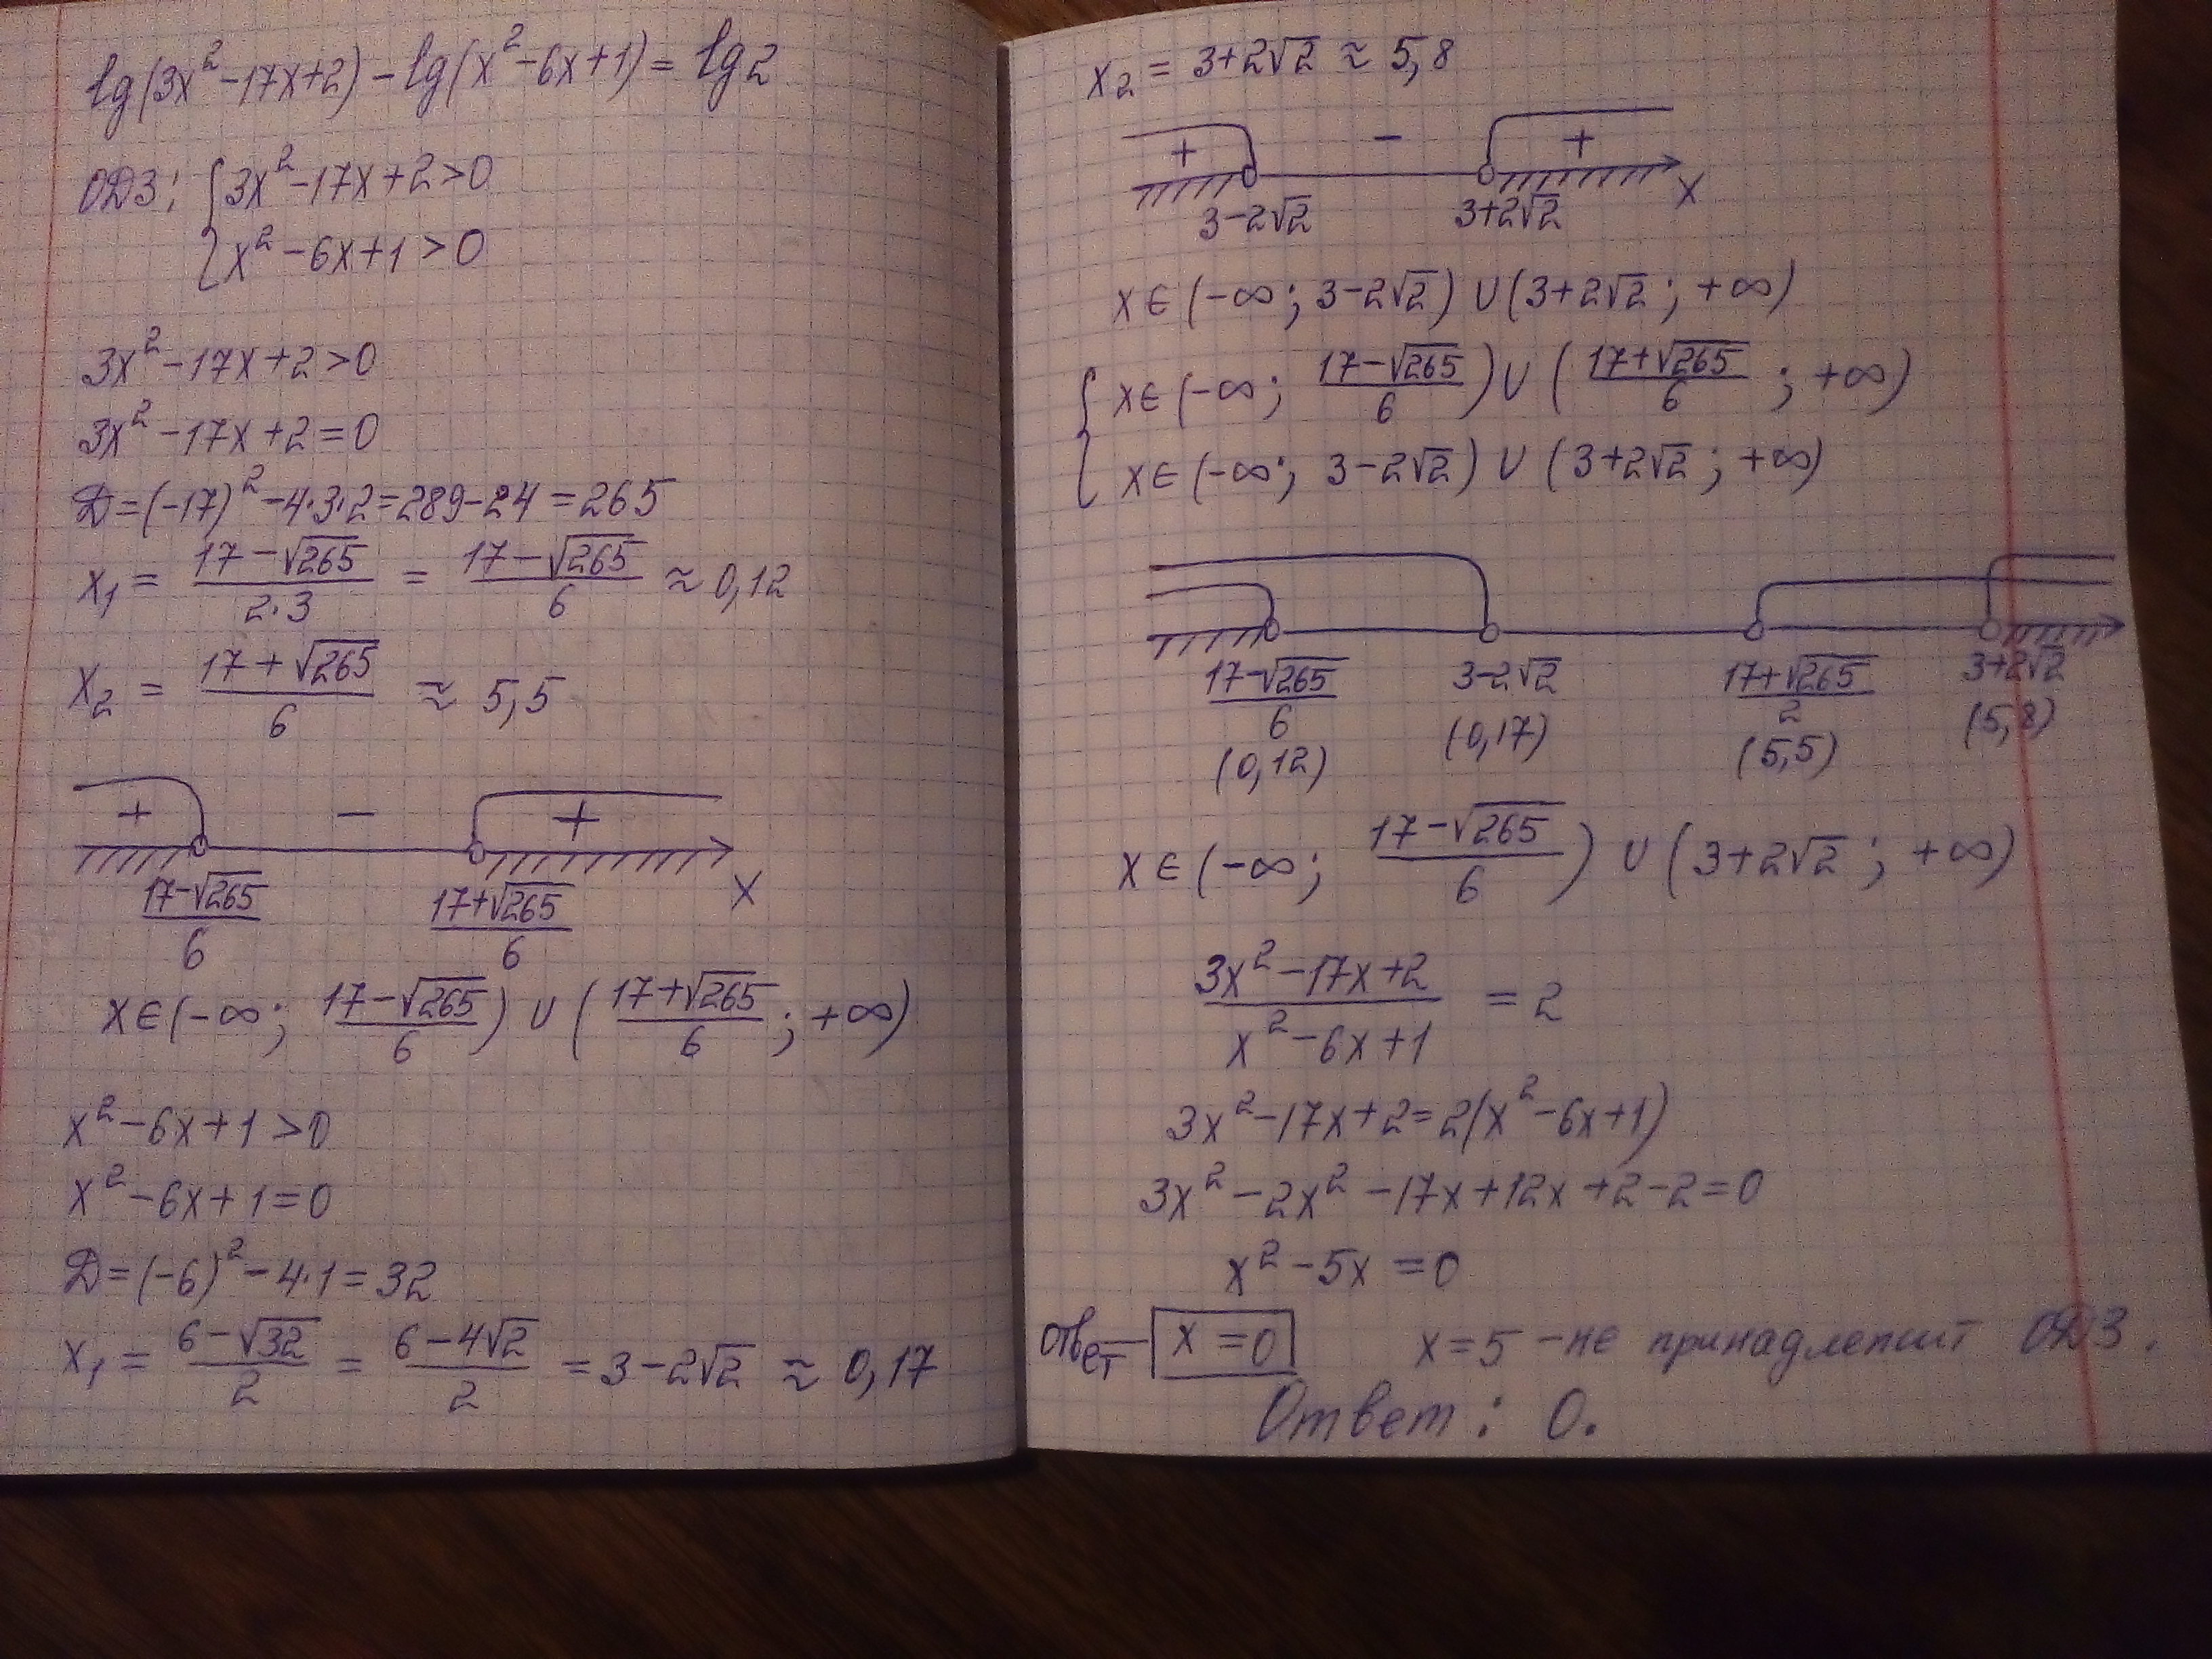 lg(3x²-17x+2)-lg(x²-6x+1)=lg2
ОДЗ: { 3x²-17x+2>0
x²-6x+1>0
3x²-17x+2>0
3x²-17x+2=0
Д=(-17)²-4·3·2=289-24=265
x₁ = (17-√265)/(2·3) = (17-√265)/6 ≈ 0,12
x₂ = (17+√265)/6 ≈ 5,5
+ - +
(17-√265)/6 (17+√265)/6 x
x∈(-∞; (17-√265)/6) ∪ ((17+√265)/6; +∞)
x²-6x+1>0
x²-6x+1=0
Д=(-6)²-4·1=32
x₁ = (6-√32)/2 = (6-4√2)/2 = 3-2√2 ≈ 0,17
x₂ = 3+2√2 ≈ 5,8
+ - +
3-2√2 3+2√2 x
x∈(-∞; 3-2√2) ∪ (3+2√2; +∞)
{ x∈(-∞; (17-√265)/6) ∪ ((17+√265)/6; +∞)
x∈(-∞; 3-2√2) ∪ (3+2√2; +∞)
(17-√265)/6 3-2√2 (17+√265)/2 3+2√2
(0,12) (0,17) (5,5) (5,8)
x∈(-∞; (17-√265)/6) ∪ (3+2√2; +∞)
(3x²-17x+2)/(x²-6x+1) = 2
3x²-17x+2=2(x²-6x+1)
3x²-2x²-17x+12x+2-2=0
x²-5x=0
ответ x=0 x=5 -не принадлежит ОДЗ.
Ответ: 0.